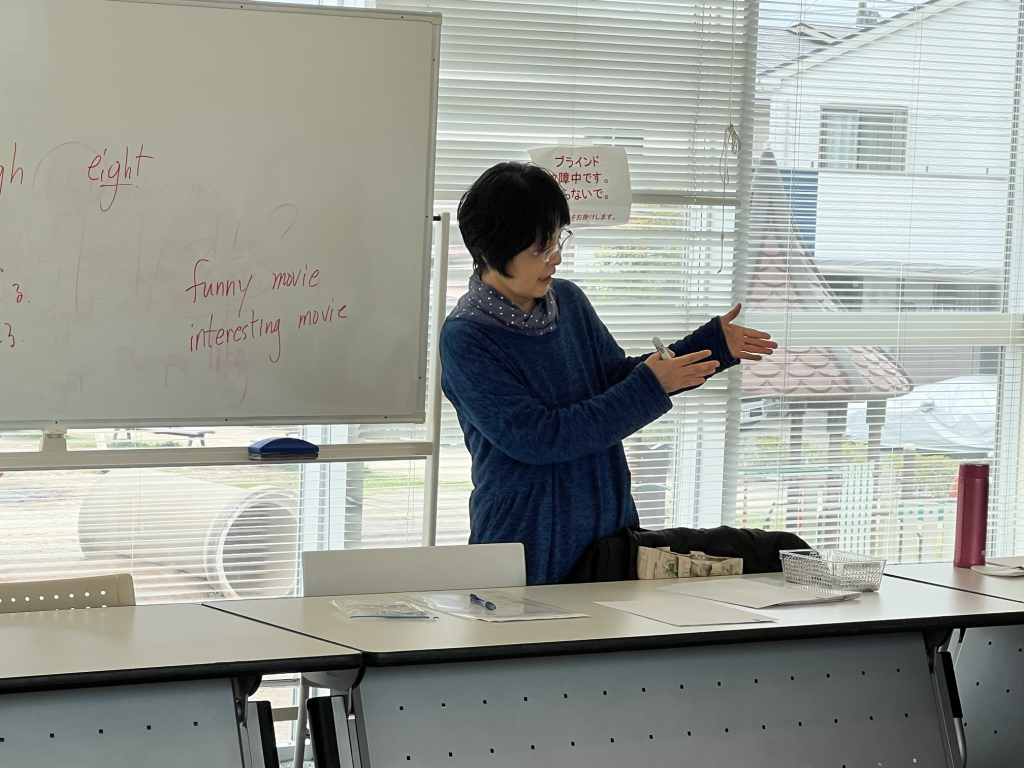 eight
funny movie
interesting movie
ブラインド
障中です。
らないで。
をお掛けします。